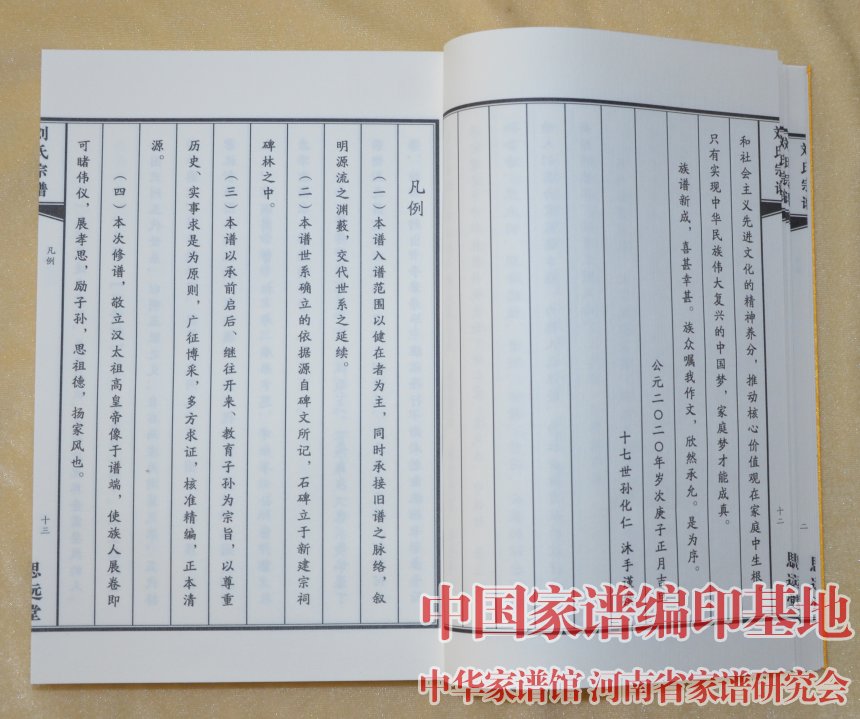 和社会主义先进文化的精神养分，推动核心价值观在家庭中生根
只有实现中华民族伟大复兴的中国梦，家庭梦才能成真。
族谱新成，喜甚幸甚。族众嘱我作文，欣然承允。是为序。
公元二〇二〇年岁次庚子正月吉
十七世孙化仁 沐手谨
刘氏宗谱
十二
思远堂
刘氏宗谱
二
思远堂
凡例
（一）本谱入谱范围以健在者为主，同时承接旧谱之脉络，叙
明源流之渊薮，交代世系之延续。
（二）本谱世系确立的依据源自碑文所记，石碑立于新建宗祠
碑林之中。
（三）本谱以承前启后、继往开来、教育子孙为宗旨，以尊重
历史、实事求是为原则，广征博采，多方求证，核准精编，正本清
源。
（四）本次修谱，敬立汉太祖高皇帝像于谱端，使族人展卷即
可睹伟仪，展孝思，励子孙，思祖德，扬家风也。
刘氏宗谱
凡例
十三
思远堂
中国家谱编印基地
中华家谱馆 河南省家谱研究会